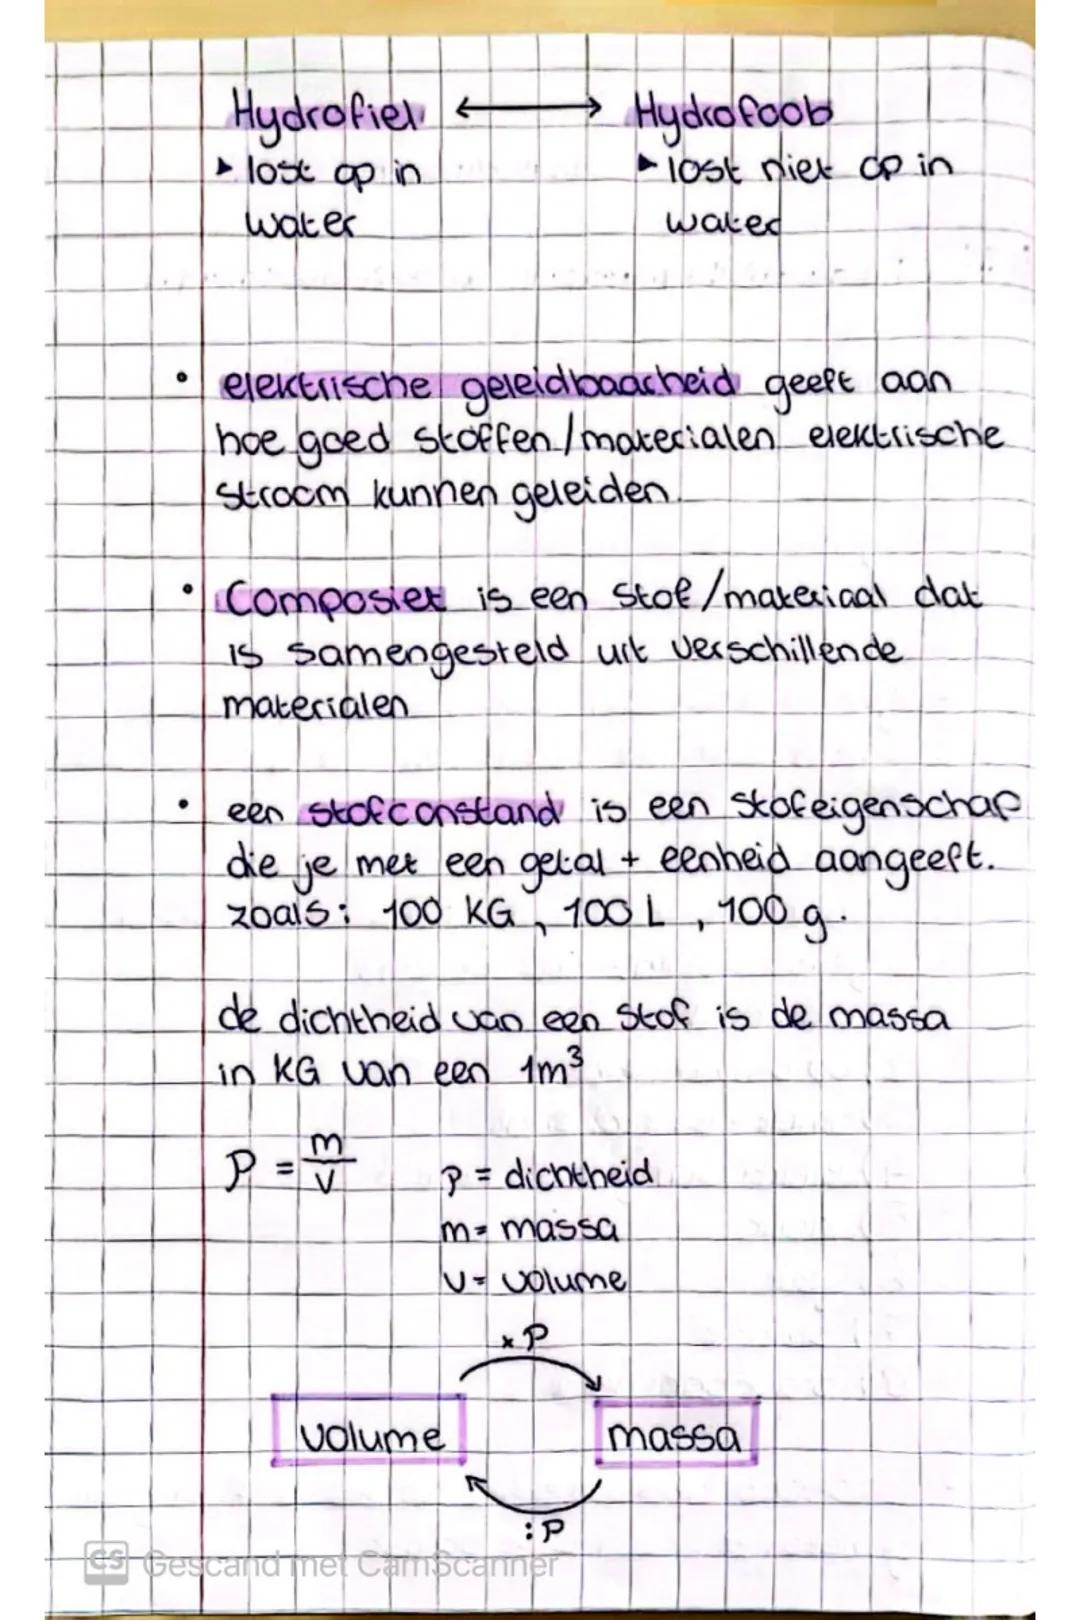 Hydrofiel ↔ Hydrofoob
▸ lost op in ▸ lost niet op in
water water
• elektrische geleidbaarheid geeft aan
hoe goed stoffen/materialen elektrische
stroom kunnen geleiden.
• Composiet is een stof/materiaal dat
is samengesteld uit verschillende
materialen
• een stofconstand is een stofeigenschap
die je met een getal + eenheid aangeeft.
zoals: 100 KG, 100 L, 100 g.
de dichtheid van een stof is de massa
in KG van een 1m³
ρ = m/v
ρ = dichtheid
m = massa
v = volume
× ρ
volume massa
: ρ
CS Gescand met CamScanner